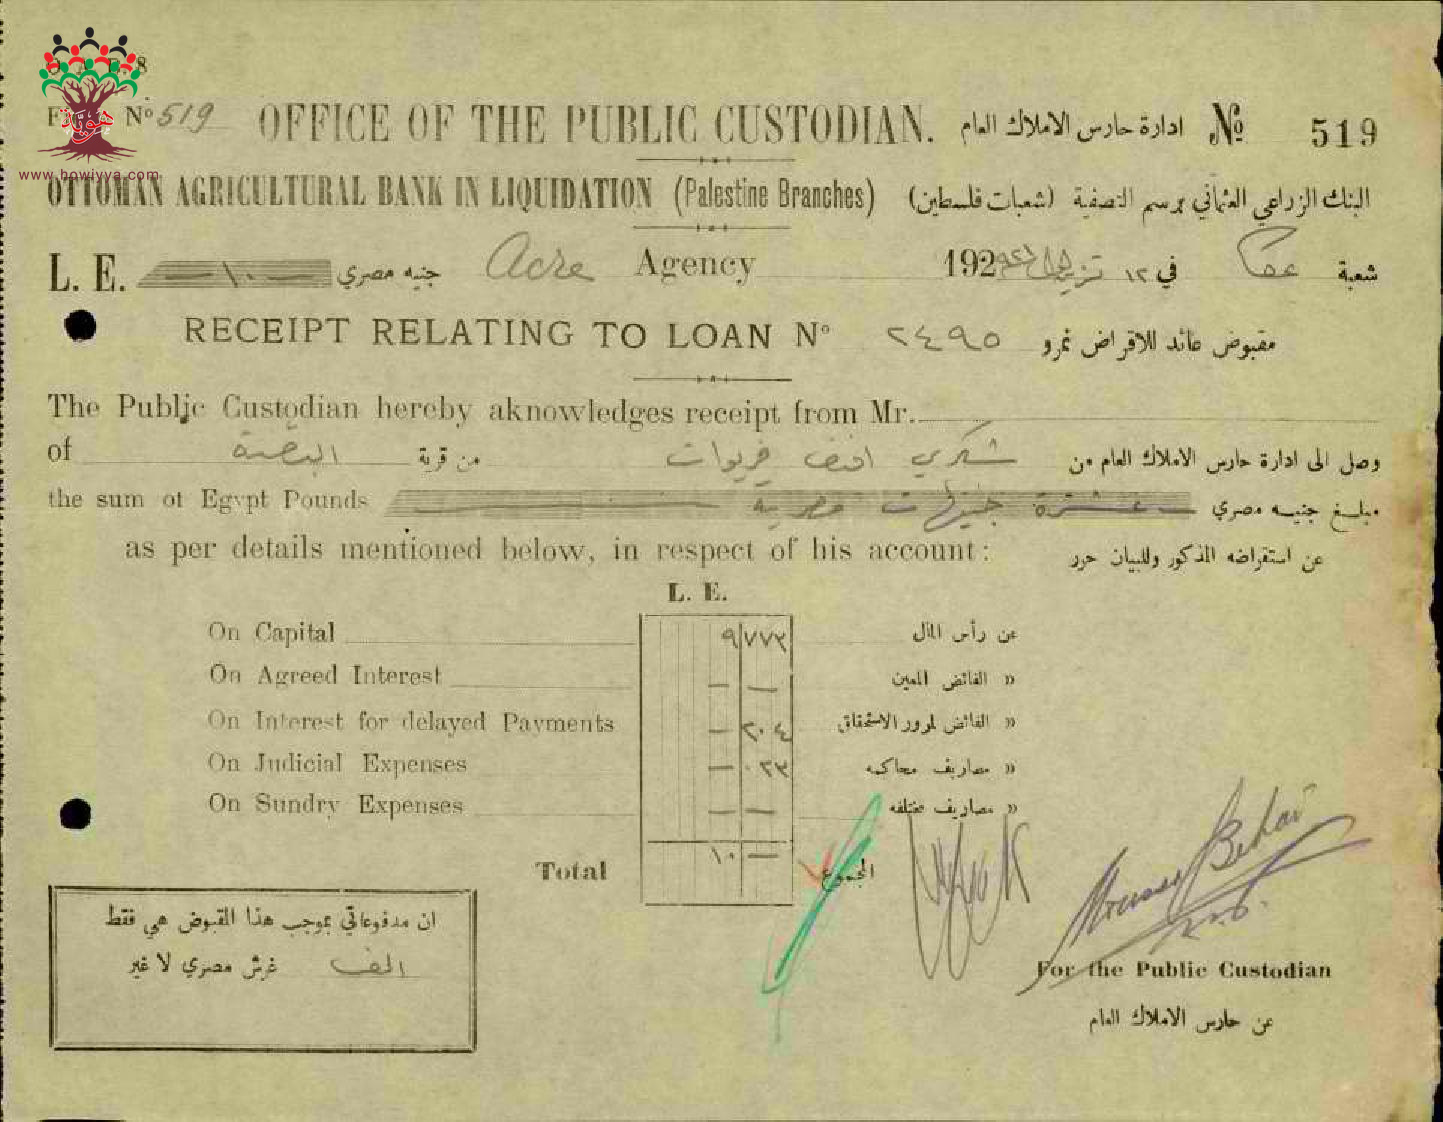 O. A. B. 8
هويّة
www.howiyya.com
Nº 519 OFFICE OF THE PUBLIC CUSTODIAN. ادارة حارس الاملاك العام Nº 519
OTTOMAN AGRICULTURAL BANK IN LIQUIDATION (Palestine Branches) البنك الزراعي العثماني برسم التصفية (شعبات فلسطين)
L. E. — ١٠ — جنيه مصري Acre Agency 192 في ١٢ شعبة عكا
RECEIPT RELATING TO LOAN Nº ٢٤٩٥ مقبوض عائد للاقراض نمرو
The Public Custodian hereby aknowledges receipt from Mr.
of البصة من قرية شكري افندي وصل الى ادارة حارس الاملاك العام من
the sum of Egypt Pounds عشرة جنيهات مصرية مبلغ جنيه مصري
as per details mentioned below, in respect of his account: عن استقراضه المذكور وللبيان حرر
L. E.
On Capital ٩ ٧٧٣ عن رأس المال
On Agreed Interest — — » الفائض المعين
On Interest for delayed Payments — ٢٠٤ » الفائض لمرور الاستحقاق
On Judicial Expenses — ٠٢٣ » مصاريف محاكمه
On Sundry Expenses — — » مصاريف مختلفه
Total ١٠ — المجموع
ان مدفوعاتي بموجب هذا المقبوض هي فقط
الف غرش مصري لا غير
For the Public Custodian
عن حارس الاملاك العام